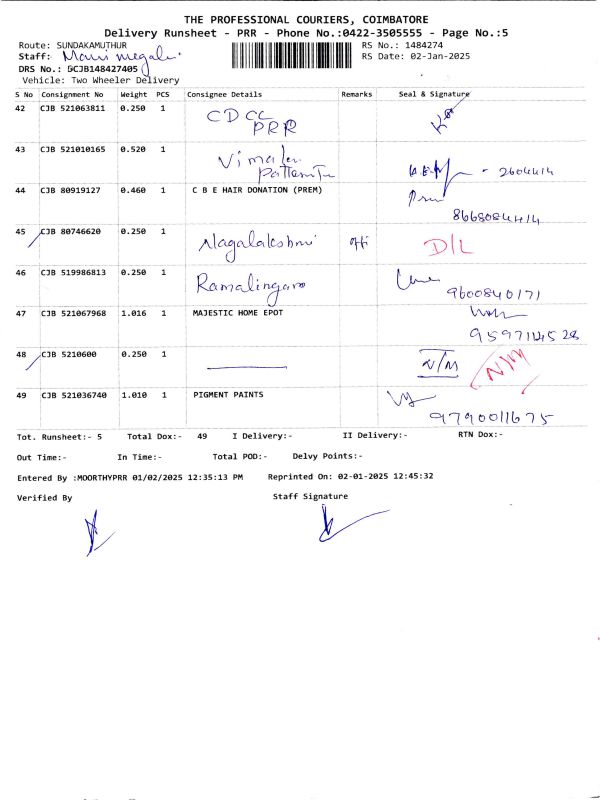 THE PROFESSIONAL COURIERS, COIMBATORE
Delivery Runsheet - PRR - Phone No.:0422-3505555 - Page No.:5
Route: SUNDAKAMUTHUR RS No.: 1484274
Staff: RS Date: 02-Jan-2025
DRS No.: DCJB148427405
Vehicle: Two Wheeler Delivery
S No Consignment No Weight PCS Consignee Details Remarks Seal & Signature
42 CJB 521063811 0.250 1 CDCC
PRR
43 CJB 521010165 0.520 1 - 2604414
44 CJB 80919127 0.460 1 C B E HAIR DONATION (PREM) Prem
8668084414
45 CJB 80746620 0.250 1 Nagalakshmi D/L
46 CJB 519986813 0.250 1 Ramalingam
9600840171
47 CJB 521067968 1.016 1 MAJESTIC HOME EPOT
9597114528
48 CJB 5210600 0.250 1 N/M N/M
49 CJB 521036740 1.010 1 PIGMENT PAINTS
9790011675
Tot. Runsheet:- 5 Total Dox:- 49 I Delivery:- II Delivery:- RTN Dox:-
Out Time:- In Time:- Total POD:- Delvy Points:-
Entered By :MOORTHYPRR 01/02/2025 12:35:13 PM Reprinted On: 02-01-2025 12:45:32
Verified By Staff Signature